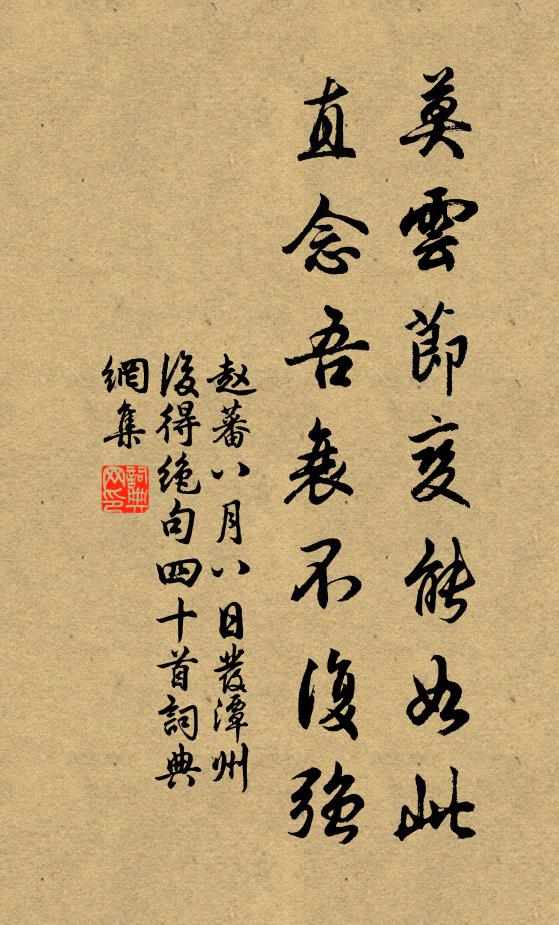 莫雲節變能如此
直念吾衰不復強
赵蕃八月八日發潭州
後得绝句四十首詞典
網集
詞典網印